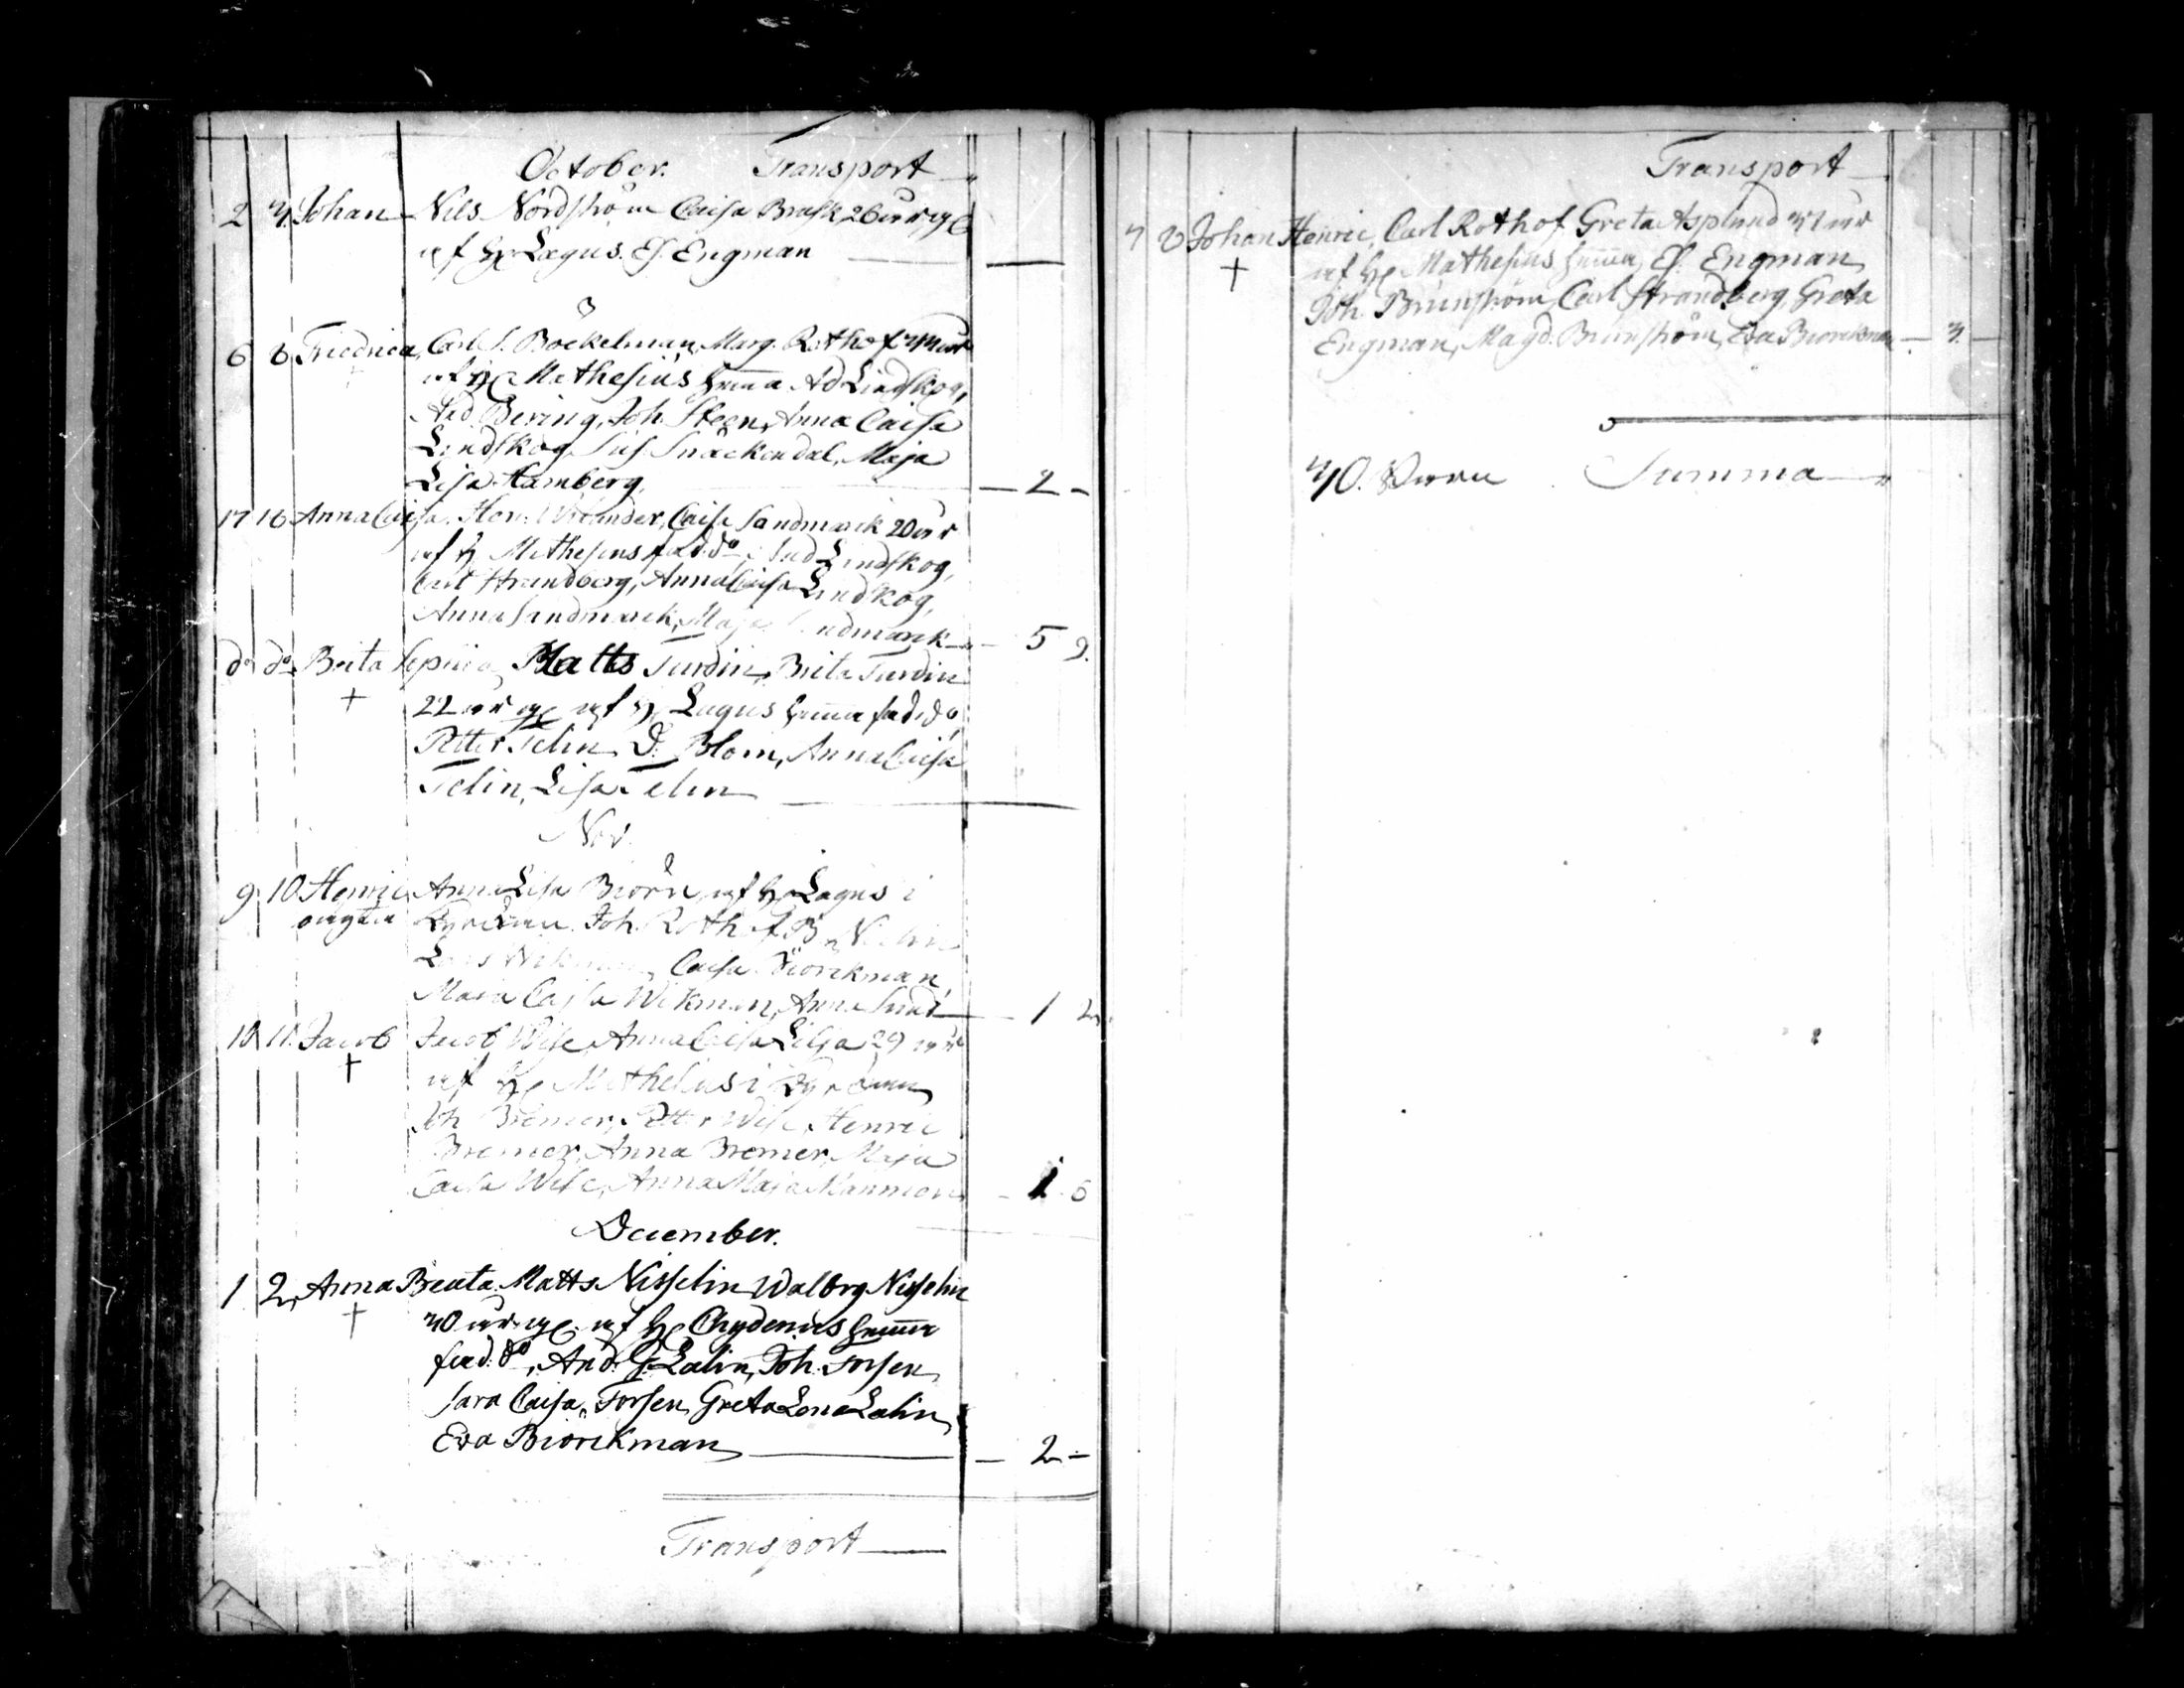 October. Transport
2 3. Johan Nils Nordström Caisa Brask, 26 år, g
af H. Lagus. Es. Engman
6 8 Friedrica, Carl J. Böckelman, Marg. Rothof år
af H. Mathesius hemma Ad Lindskog,
And Bering, Joh. Steen, Anna Caisa
Lindskog, Sus. Snäckendal, Maja
Lisa Hamberg, 2 -
17 18 Anna Caisa. Hen. Caisa Sandmarck 20 år
af H Mathesius fad. do, Lindskog,
Strandberg, Anna Caisa Lindskog,
Anna Sandmarck, Maja 5 3.
do do Brita Matts Turdin, Brita Turdin
22 år af H Lagus hemma fad. do,
Petter Telin D. Blom, Anna Caisa
Telin, Lisa Telin
Nov.
9. 10. Henric Anna Lisa Biörn af H. Lagus i
oägta Kyrckan Joh. Rothof
Caisa Biörckman,
Maria Caisa Wikman, Anna 1 2
10 11. Jacob Jacob Wise, Anna Caisa Lilja 29 år
af H. Mathesius i Kyrckan
Joh Bremer, Petter Wise, Henric
Bremer, Anna Bremer, Maja
Caisa Wise, Anna Maja - 1. 6
December.
1 2, Anna Breata, Matts Nisselin Walbrg Nisselin
30 år g. af H. Chydenius hemma
fad. do, And. G. Lalin, Joh. Forsen,
Sara Caisa Forsen, Greta Lena Lalin,
Eva Biörckman - 2 -
Transport
Transport
7 8 Johan Henric, Carl Rothof Greta Asplund 31 år
af H. Mathesius hemma, Es. Engman,
Joh. Brunström, Carl Strandberg, Greta
Engman, Magd. Brunström, Eva Biörckman - 3. -
Barn Summa